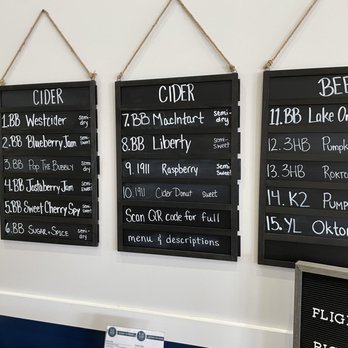 CIDER
1.BB Westcider semi-dry
2.BB Blueberry Jam semi-sweet
3.BB POP THE BUBBLY semi-dry
4.BB Jostaberry Jam semi-sweet
5.BB Sweet Cherry Spy semi-sweet
6.BB SUGAR + SPICE semi-dry
CIDER
7.BB MacIntart semi-dry
8.BB Liberty semi-sweet
9. 1911 Raspberry semi-sweet
10. 1911 Cider Donut sweet
Scan QR code for full
menu & descriptions
BEE
11.BB Lake On
12. 3HB Pumpk
13. 3HB
14. K2 Pump
15. YL Oktob
FLIGH